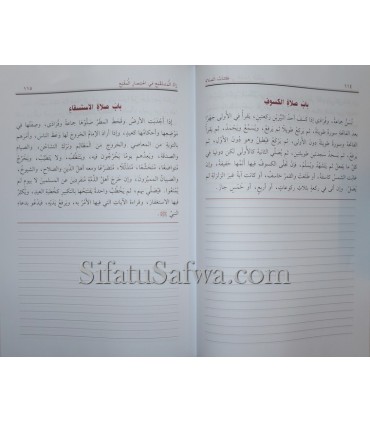 ١١٤
باب صلاة الكسوف
تسن جماعة، وفرادى إذا كسف أحد النيرين ركعتين، يقرأ في الأولى جهرا
بعد الفاتحة سورة طويلة، ثم يركع طويلا، ثم يرفع، ويسمع، ويحمد، ثم يقرأ
الفاتحة وسورة طويلة دون الأولى، ثم يركع فيطيل وهو دون الأول، ثم يرفع،
ثم يسجد سجدتين طويلتين، ثم يصلي الثانية كالأولى لكن دونها في
كل ما يفعل، ثم يتشهد ويسلم، فإن تجلى الكسوف فيها أتمها خفيفة، وإن
غابت الشمس كاسفة، أو طلعت والقمر خاسف، أو كانت آية غير الزلزلة لم
يصل، وإن أتى في كل ركعة بثلاث ركوعات، أو أربع، أو خمس جاز.
زاد المستقنع في اختصار المقنع
١١٥
باب صلاة الاستسقاء
إذا أجدبت الأرض وقحط المطر صلوها جماعة وفرادى، وصفتها في
موضعها وأحكامها كعيد، وإذا أراد الإمام الخروج لها وعظ الناس، وأمرهم
بالتوبة من المعاصي والخروج من المظالم وترك التشاحن والصيام
والصدقة، ويعدهم يوما يخرجون فيه، ويتنظف، ولا يتطيب، ويخرج
متواضعا، متخشعا، متذللا، متضرعا، ومعه أهل الدين والصلاح، والشيوخ،
والصبيان المميزون، وإن خرج أهل الذمة منفردين عن المسلمين لا بيوم لم
يمنعوا، فيصلي بهم، ثم يخطب واحدة يفتتحها بالتكبير كخطبة العيد، ويكثر
فيها الاستغفار، وقراءة الآيات التي فيها الأمر به، ويرفع يديه، فيدعو بدعاء
النبي ﷺ
SifatuSafwa.com